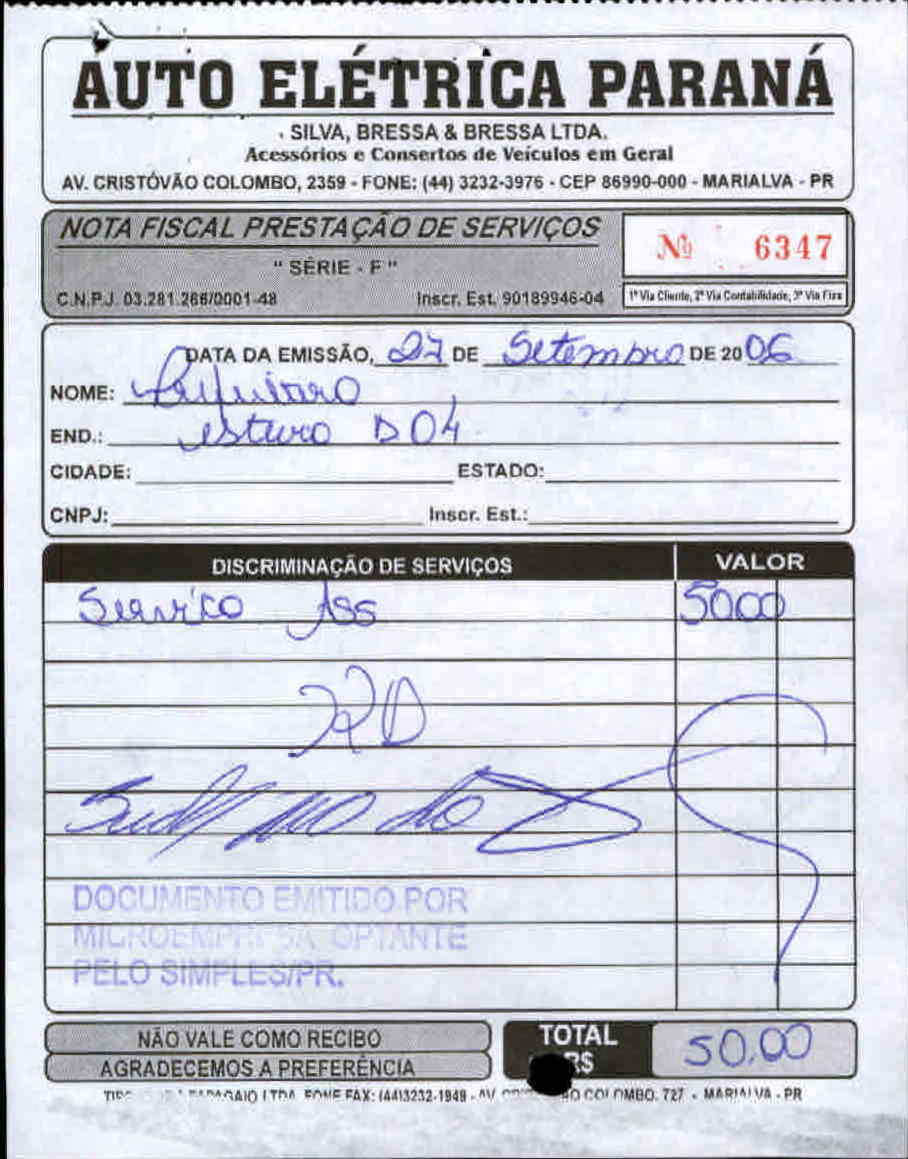 AUTO ELÉTRICA PARANÁ
SILVA, BRESSA & BRESSA LTDA.
Acessórios e Consertos de Veículos em Geral
AV. CRISTÓVÃO COLOMBO, 2359 - FONE: (44) 3232-3976 - CEP 86990-000 - MARIALVA - PR
NOTA FISCAL PRESTAÇÃO DE SERVIÇOS
Nº 6347
" SÉRIE - F "
C.N.P.J. 03.281.266/0001-48 Inscr. Est. 90189946-04
1ª Via Cliente, 2ª Via Contabilidade, 3ª Via Fixa
DATA DA EMISSÃO, 27 DE Setembro DE 2006
NOME:
END.: D 04
CIDADE: ESTADO:
CNPJ: Inscr. Est.:
DISCRIMINAÇÃO DE SERVIÇOS VALOR
Serviço 5000
DOCUMENTO EMITIDO POR
MICROEMPRESA OPTANTE
PELO SIMPLES/PR.
NÃO VALE COMO RECIBO
AGRADECEMOS A PREFERÊNCIA
TOTAL R$ 50,00
PAPAGAIO LTDA. FONE FAX: (44)3232-1949 - AV. COLOMBO, 727 - MARIALVA - PR